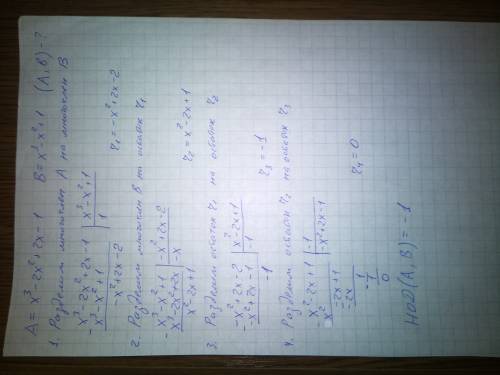 A = x³-2x²+2x-1  B = x³-x²+1  (A, B) - ?
1. Разделим многочлен A на многочлен B
- x³-2x²+2x-1 | x³-x²+1
x³-x²+1 | 1
-x²+2x-2  r₁ = -x²+2x-2
2. Разделим многочлен B на остаток r₁
- x³-x²+1 | -x²+2x-2
x³-2x²+2x | -x
x²-2x+1  r₂ = x²-2x+1
3. Разделим остаток r₁ на остаток r₂
- -x²+2x-2 | x²-2x+1
-x²+2x-1 | -1
-1  r₃ = -1
4. Разделим остаток r₂ на остаток r₃
- x²-2x+1 | -1
x² | -x²+2x-1
- -2x+1
-2x
- 1
1
0  r₄ = 0
НОД(A, B) = -1